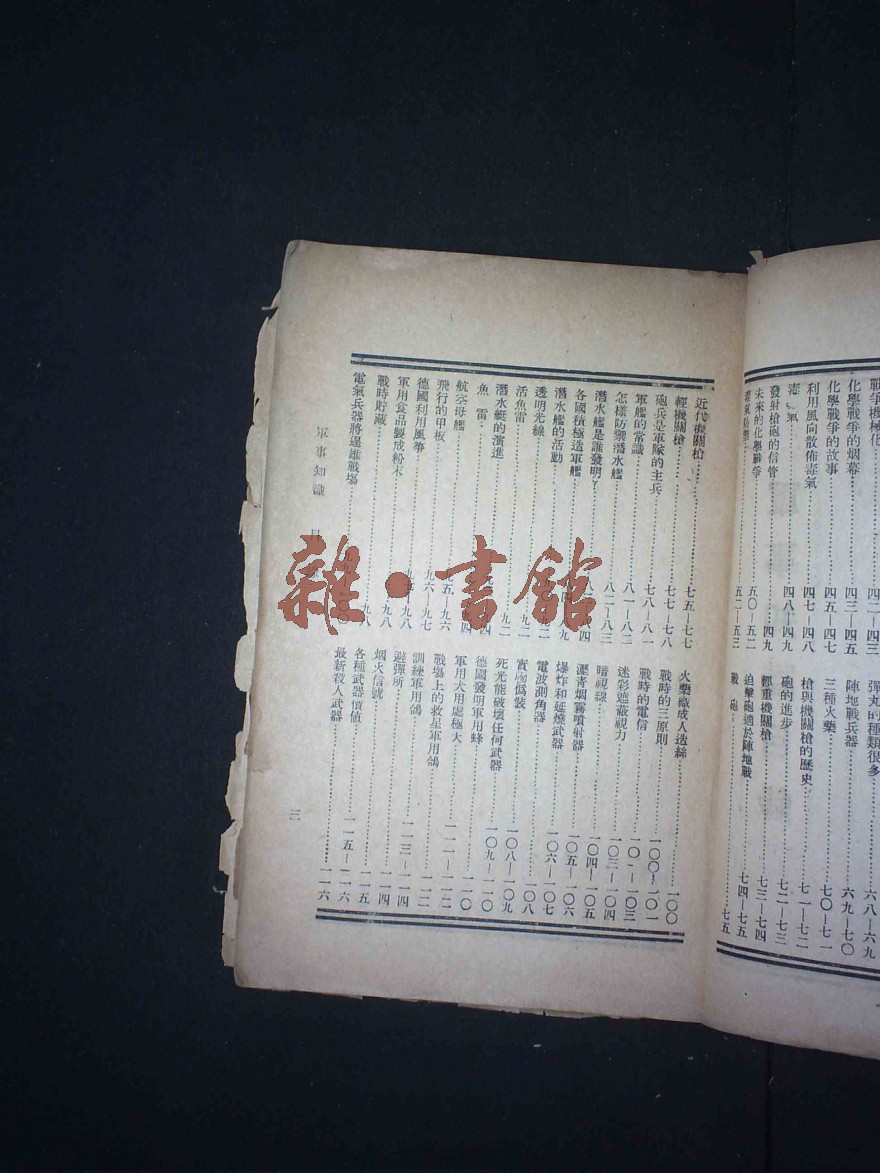 戰爭機械化……四二—四三
化學戰爭的烟幕……四三—四五
化學戰爭的故事……四五—四七
利用風向散佈毒氣……四七—四八
毒氣……四八—四九
發射槍砲的信管……四九
未來的化學戰爭……五〇—五二
毒氣防禦……五二—五三
彈丸的種類很多……六八—六九
陣地戰兵器……六九—七〇
三種火藥……七〇—七一
槍與機關槍的歷史……七一—七二
砲的進步……七二—七三
輕重機關槍……七三—七四
迫擊砲適於陣地戰……七四—七五
戰砲……七五
近代機關槍……七五—七七
輕機關槍……七七—七八
砲兵是軍隊的主兵……七八—八一
軍艦的常識……八一—八二
怎樣防禦潛水艦……八二—八三
潛水艦是誰發明？
各國積極造軍艦
潛水艦的活動
透明光線
活魚雷
潛水艇的演進……九二
魚雷
航空母艦
飛行的甲板……九五—九六
德國利用風箏……九六—九七
軍用食品製成粉末……九八
戰時貯藏……九八
電氣兵器將逞雄戰場
火藥織成人造絲……一〇〇
戰時的三原則……一〇〇—一〇一
戰時的電信……一〇二—一〇三
迷彩遮蔽視力……一〇三—一〇四
暗視線……一〇四—一〇五
瀝青烟霧噴射器……一〇五—一〇六
爆炸和延燒武器……一〇六—一〇七
電波測角器……一〇八
實物偽裝……一〇八—一〇九
死光能破壞任何武器……一〇九—一一〇
德國發明軍用蜂……一一〇
軍用犬用處極大……一一一—一一二
戰場上的救星軍用鴿……一一二
訓練軍用鴿……一一三—一一四
避彈所……一一四
烟火信號……一一五
各種武器價值……一一五—一一六
最新殺人武器……一一六
軍事知識 目
三
雜·書館